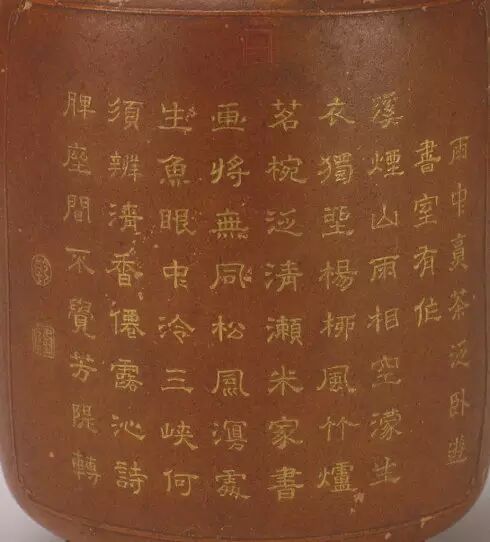 雨中烹茶泛卧遊
書室有作
溪煙山雨相空濛生
衣獨坐楊栁風竹爐
茗椀泛清瀨米家書
畫將無同松風瀉處
生魚眼中泠三峽何
須辨清香僊露沁詩
脾座間不覺芳隄轉